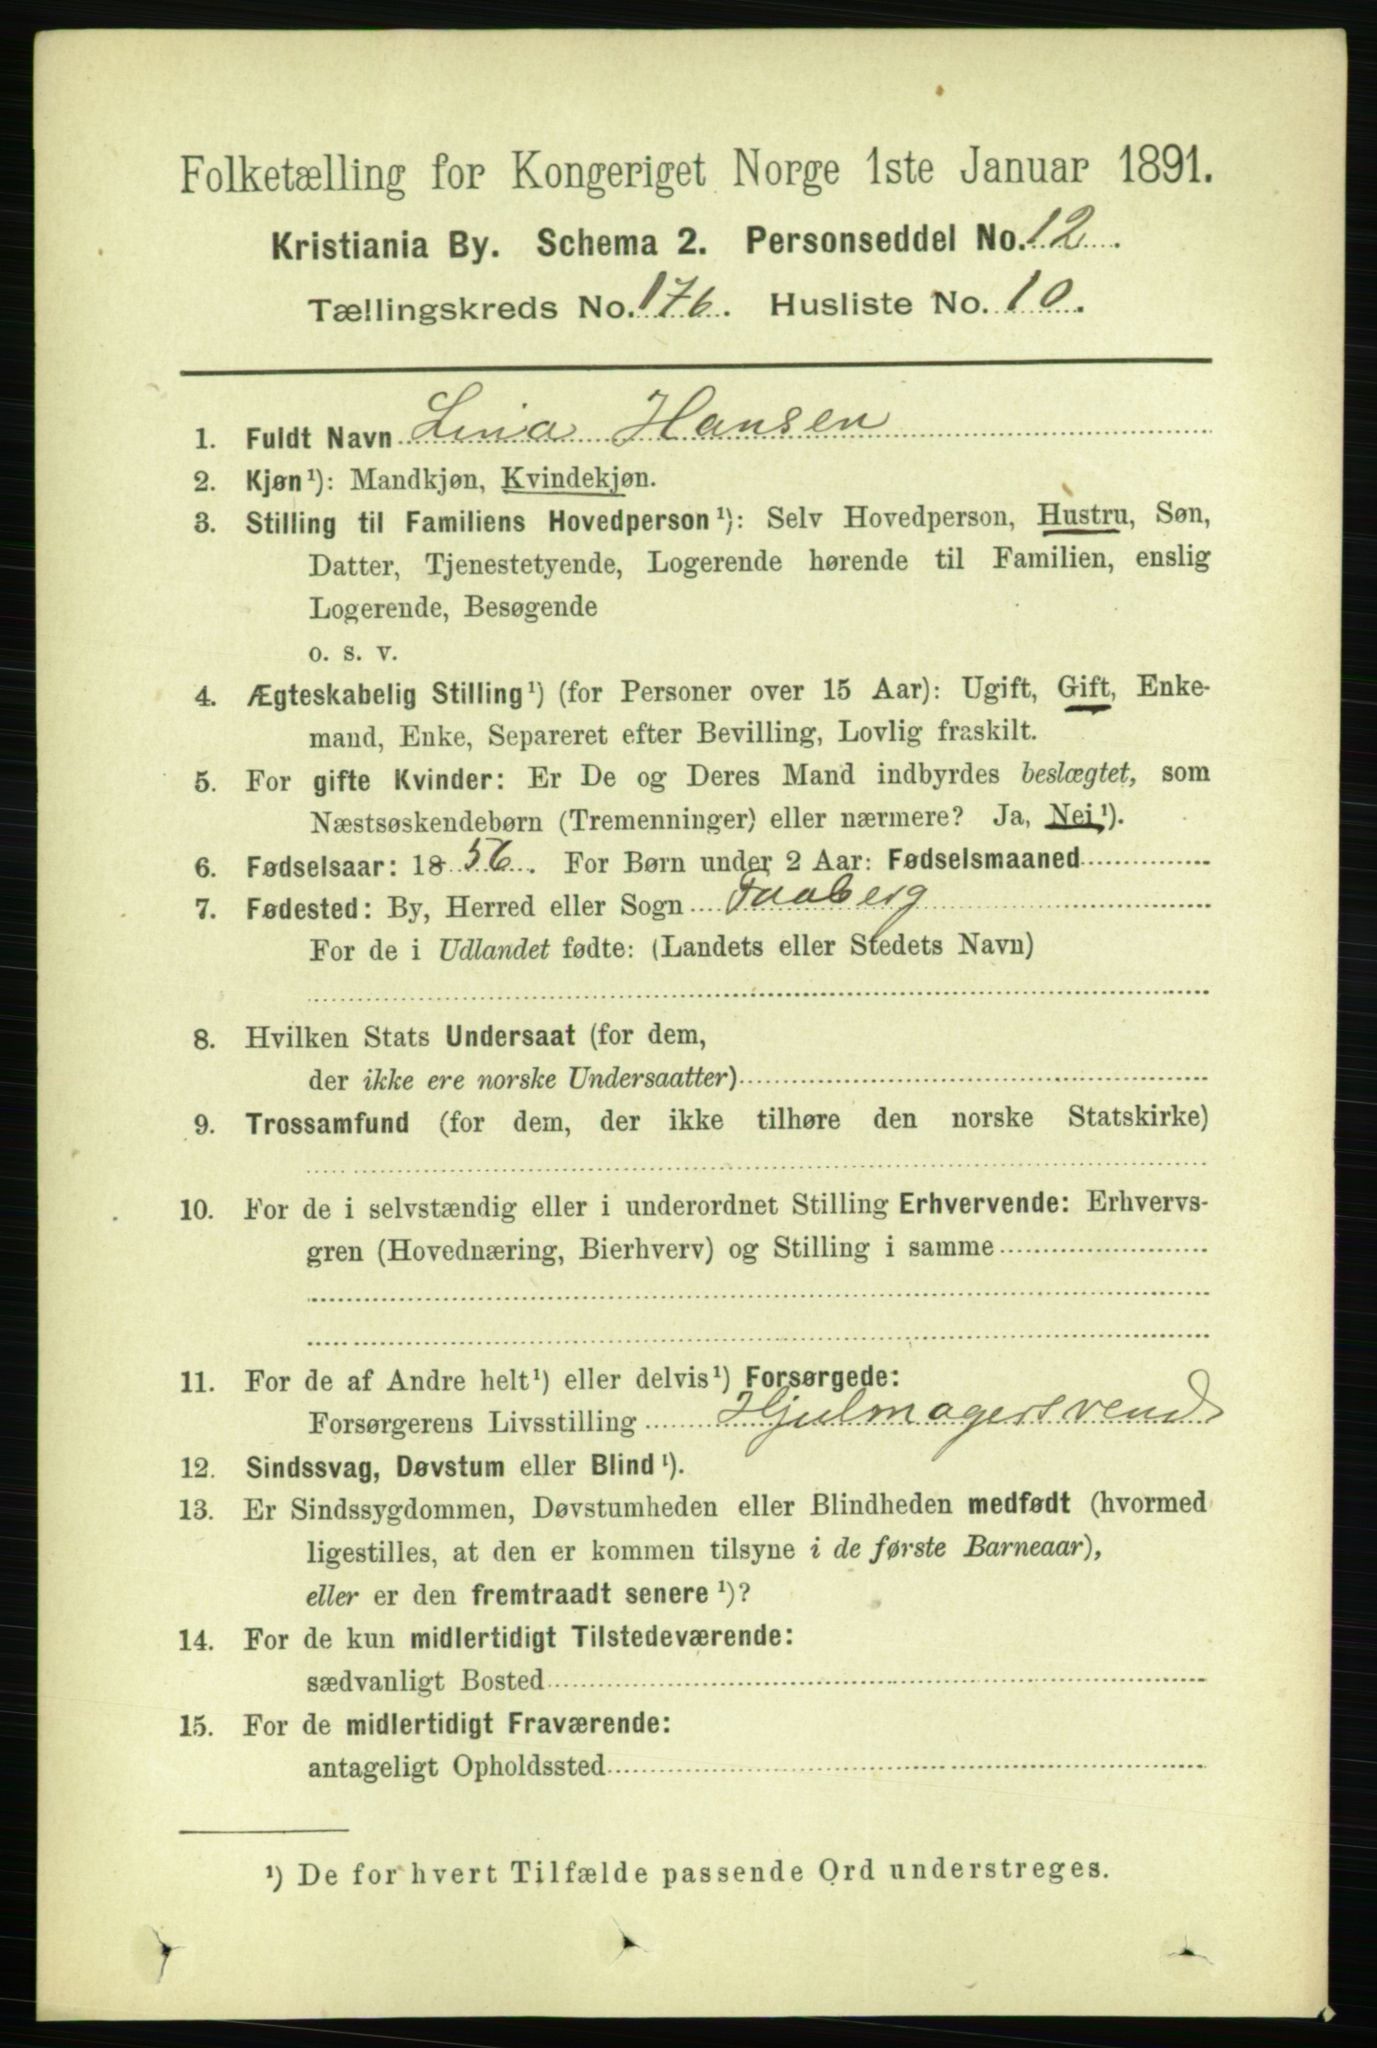 Folketælling for Kongeriget Norge 1ste Januar 1891.
Kristiania By. Schema 2. Personseddel No. 12.
Tællingskreds No. 176. Husliste No. 10.
1. Fuldt Navn Lina Hansen
2. Kjøn¹): Mandkjøn, Kvindekjøn.
3. Stilling til Familiens Hovedperson¹): Selv Hovedperson, Hustru, Søn,
Datter, Tjenestetyende, Logerende hørende til Familien, enslig
Logerende, Besøgende
o. s. v.
4. Ægteskabelig Stilling¹) (for Personer over 15 Aar): Ugift, Gift, Enke-
mand, Enke, Separeret efter Bevilling, Lovlig fraskilt.
5. For gifte Kvinder: Er De og Deres Mand indbyrdes beslægtet, som
Næstsøskendebørn (Tremenninger) eller nærmere? Ja, Nei¹).
6. Fødselsaar: 1856. For Børn under 2 Aar: Fødselsmaaned
7. Fødested: By, Herred eller Sogn Faaberg
For de i Udlandet fødte: (Landets eller Stedets Navn)
8. Hvilken Stats Undersaat (for dem,
der ikke ere norske Undersaatter)
9. Trossamfund (for dem, der ikke tilhøre den norske Statskirke)
10. For de i selvstændig eller i underordnet Stilling Erhvervende: Erhvervs-
gren (Hovednæring, Bierhverv) og Stilling i samme
11. For de af Andre helt¹) eller delvis¹) Forsørgede:
Forsørgerens Livsstilling Hjulmagersvend
12. Sindssvag, Døvstum eller Blind¹).
13. Er Sindssygdommen, Døvstumheden eller Blindheden medfødt (hvormed
ligestilles, at den er kommen tilsyne i de første Barneaar),
eller er den fremtraadt senere¹)?
14. For de kun midlertidigt Tilstedeværende:
sædvanligt Bosted
15. For de midlertidigt Fraværende:
antageligt Opholdssted
¹) De for hvert Tilfælde passende Ord understreges.